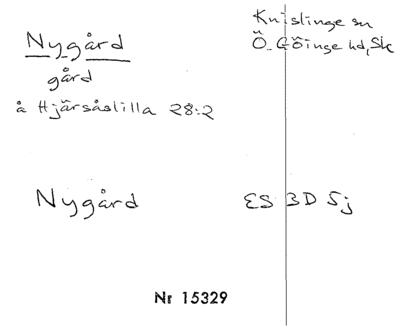 Nygård
Knislinge sn
Ö. Göinge hd, Sk
gård
å Hjärsåslilla 28:2
Nygård
ES 3D 5j
Nr 15329